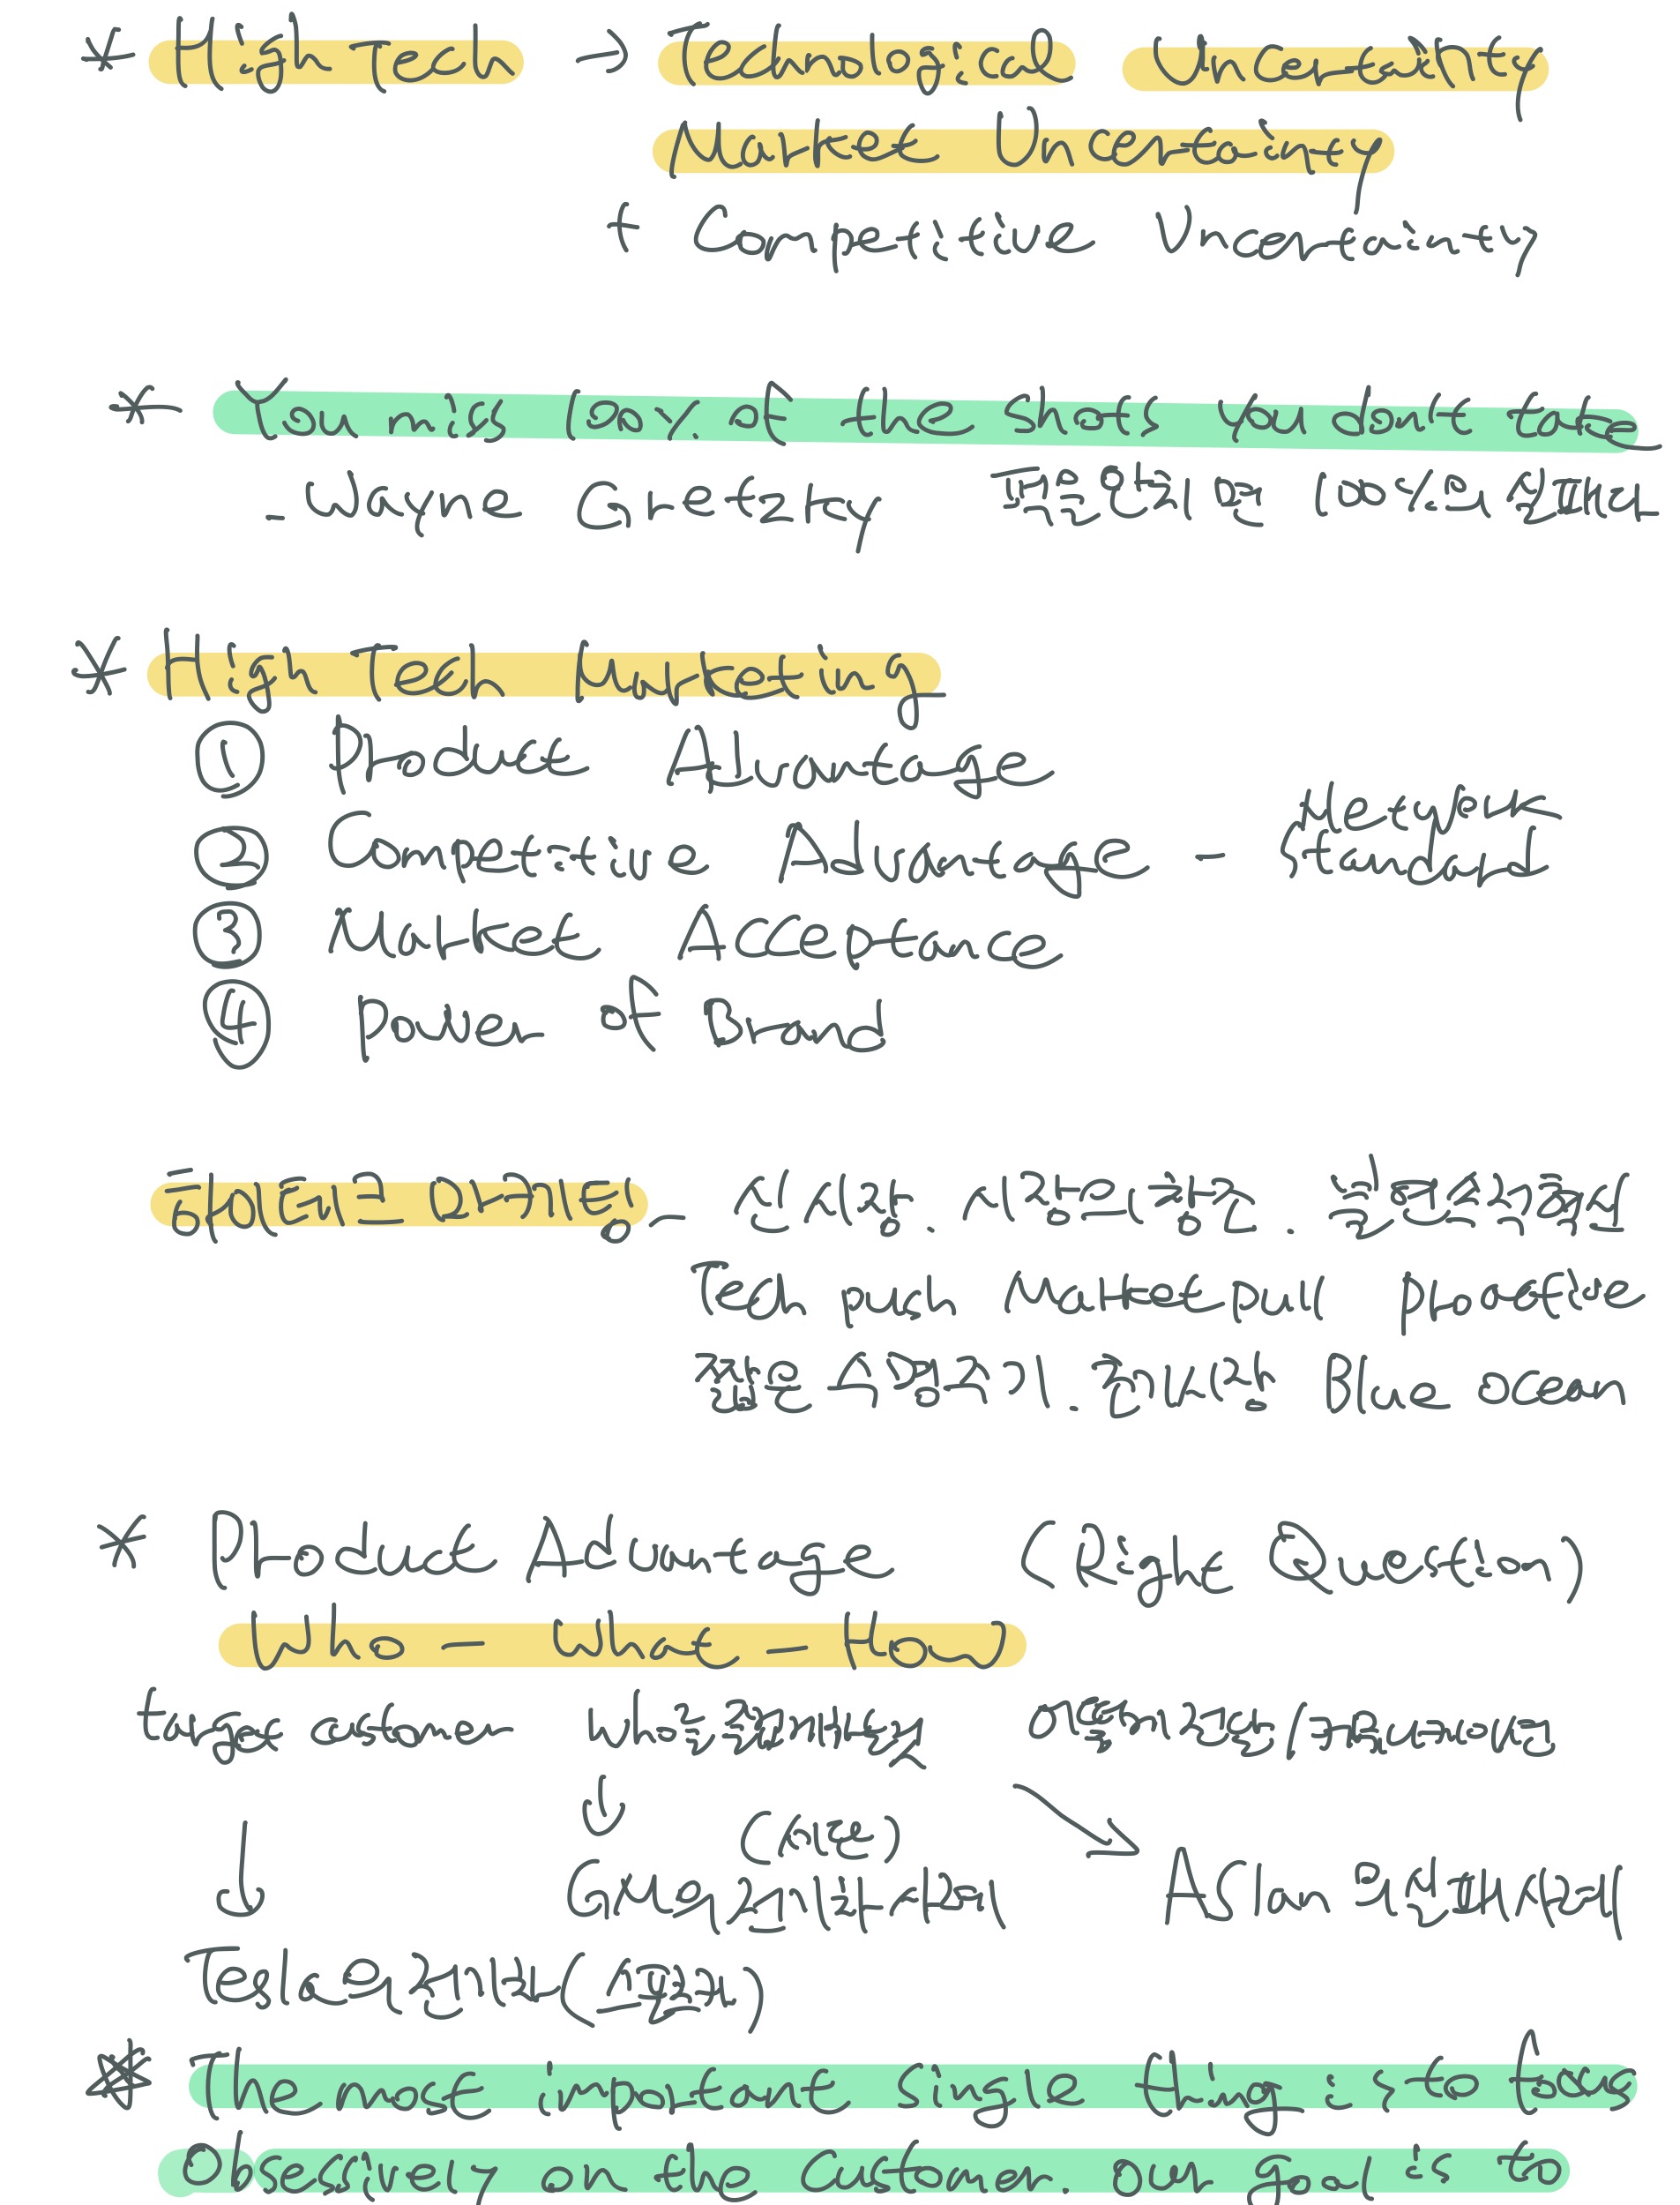 * High Tech → Technological Uncertainty
Market Uncertainty
+ Competitive Uncertainty
* You miss 100%. of the shots you don't take
- Wayne Gretzky 포문안취면 100%의 실패다
* High Tech Marketing
① Product Advantage
② Competitive Advantage - Network Standard
③ Market Acceptance
④ Power of Brand
하이테크 마케팅 - 신시장. 시장의창조. 불연속혁신
Tech push Market pull proactive
짧은 수명주기. 틈새시장 Blue ocean
* Product Advantage (Right Question)
Who - What - How
target customer What으로 경쟁할것
↓ (시론)
↓ Aslan 의 실패사례
Tesla의 전기차 (스포츠카)
* The most important single thing is to focus
Obsessively on the Customer. Our goal is to